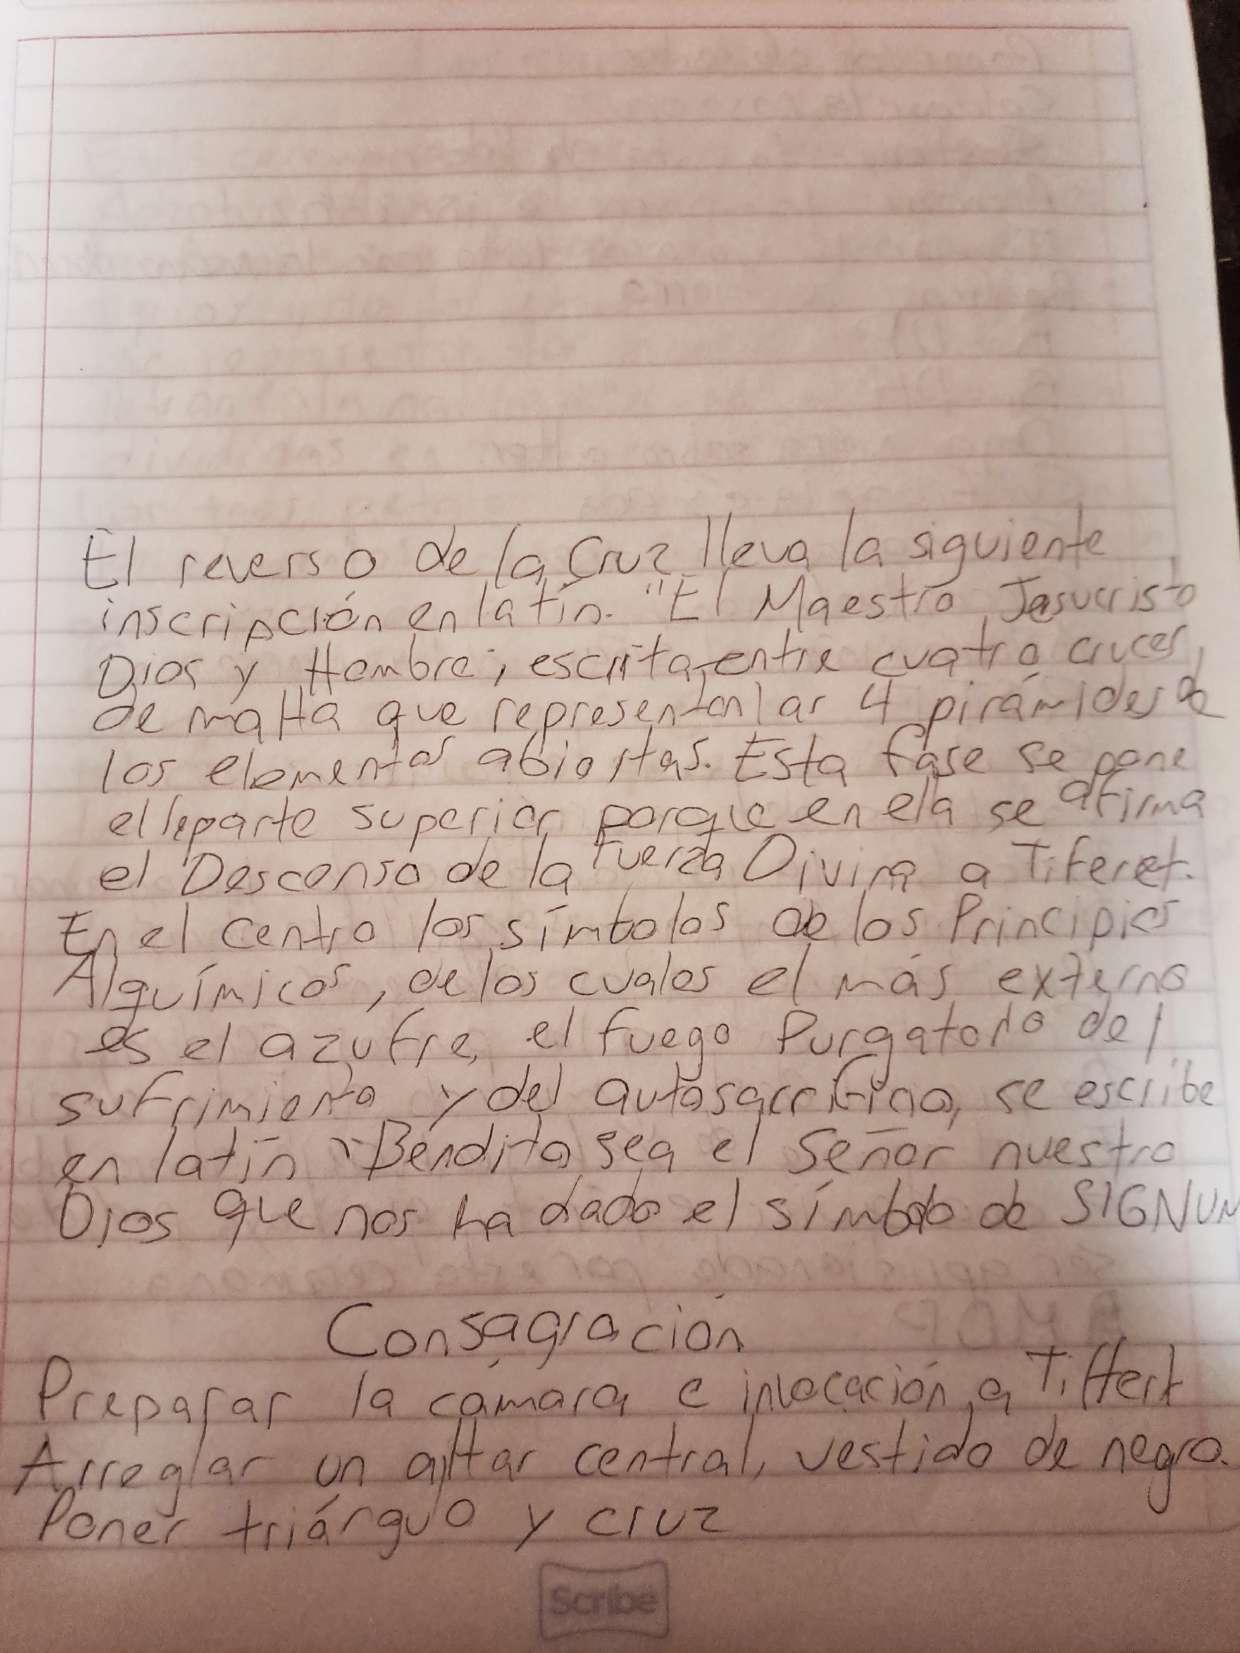 El reverso de la Cruz lleva la siguiente
inscripción en latín. "El Maestro Jesucristo
Dios y Hombre", escrita entre cuatro cruces
de malta que representan las 4 pirámides de
los elementos abiertas. Esta fase se pone
el la parte superior porque en ela se afirma
el Descenso de la Fuerza Divina a Tiferet.
En el centro los símbolos de los Principios
Alquímicos, de los cuales el más externo
es el azufre, el fuego Purgatorio del
sufrimiento y del autosacrificio, se escribe
en latín "Bendito sea el Señor nuestro
Dios que nos ha dado el símbolo de SIGNUM
Consagración
Preparar la cámara e invocación a Tiffert
Arreglar un altar central, vestido de negro.
Poner triánguo y cruz
Scribe